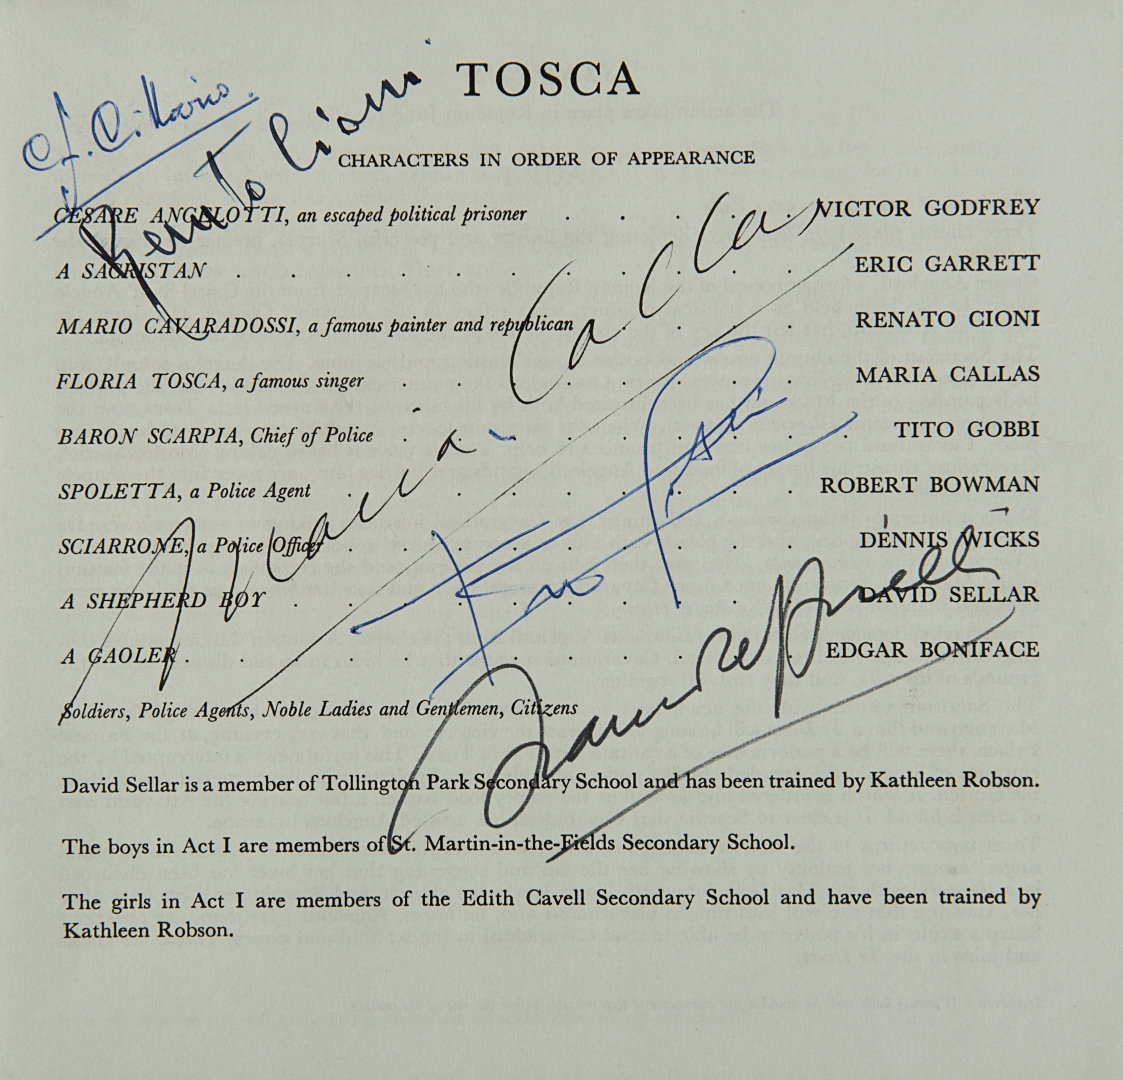 TOSCA
Renato Cioni
CHARACTERS IN ORDER OF APPEARANCE
CESARE ANGELOTTI, an escaped political prisoner . . . . . VICTOR GODFREY
A SACRISTAN . . . . . . . . . . . ERIC GARRETT
MARIO CAVARADOSSI, a famous painter and republican . . . . RENATO CIONI
FLORIA TOSCA, a famous singer . . . . . . . . MARIA CALLAS
Maria Callas
BARON SCARPIA, Chief of Police . . . . . . . . . TITO GOBBI
SPOLETTA, a Police Agent . . . . . . . . . ROBERT BOWMAN
SCIARRONE, a Police Officer . . . . . . . . . DENNIS WICKS
A SHEPHERD BOY . . . . . . . . . . DAVID SELLAR
A GAOLER . . . . . . . . . . . . EDGAR BONIFACE
Soldiers, Police Agents, Noble Ladies and Gentlemen, Citizens
David Sellar is a member of Tollington Park Secondary School and has been trained by Kathleen Robson.
The boys in Act I are members of St. Martin-in-the-Fields Secondary School.
The girls in Act I are members of the Edith Cavell Secondary School and have been trained by
Kathleen Robson.